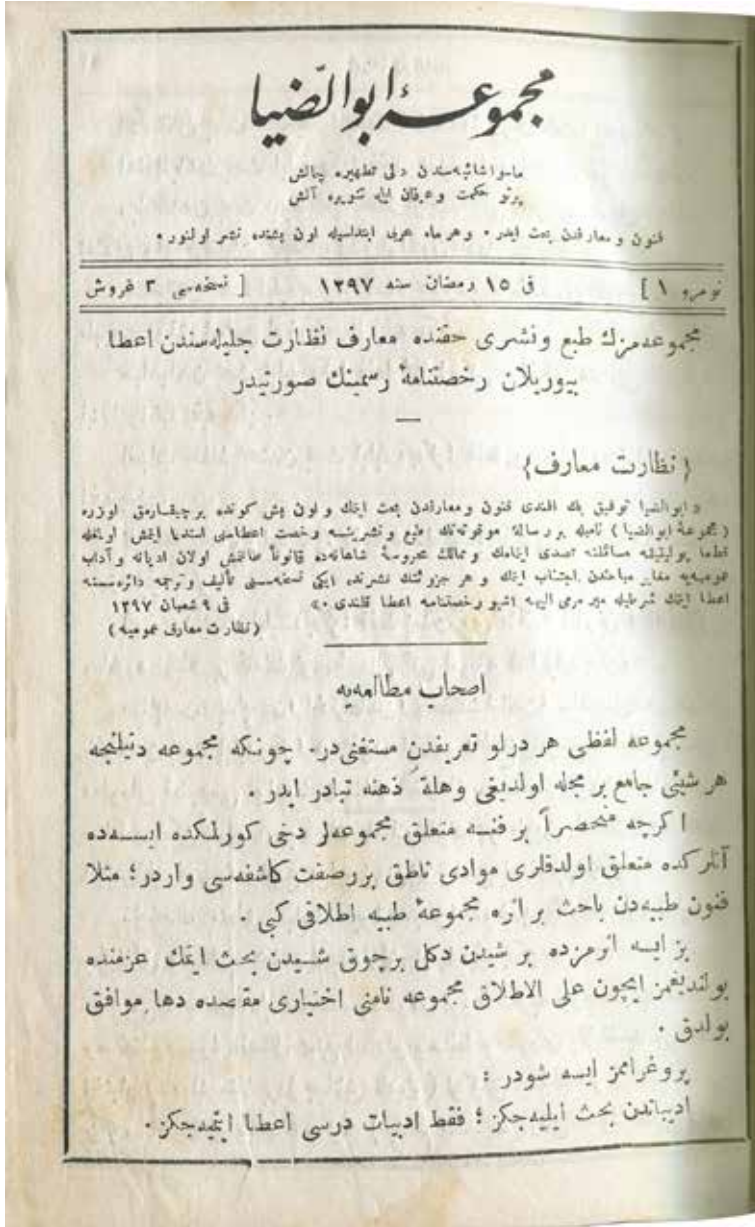 مجموعۀ ابوالضیا
ماسوا شائبه‌سندن دلی تطهیره چالش
پرتو حکمت و عرفان ایله تنویره آلش
فنون و معارفدن بحث ایدر • و هر ماه عربی ابتداسیله اون بشنده نشر اولنور •
نومرو ١ ] فی ١٥ رمضان سنه ١٢٩٧ [ نسخه‌سی ٣ غروش
مجموعه‌مزك طبع و نشری حقنده معارف نظارت جلیله‌سندن اعطا
بیوریلان رخصتنامۀ رسمینك صورتیدر
{ نظارت معارف }
« ابوالضیا توفیق بك افندی فنون و معارفدن بحث ایتمك و اون بش كونده بر چیقارمق اوزره
(مجموعۀ ابوالضیا) نامیله بر رسالۀ موقوته‌نك طبع و نشرینه رخصت اعطاسنی استدعا ایتمش اولمغله
قطعا پولیتیقه مسائلنه تصدی ایتمامك و ممالك محروسۀ شاهانه‌ده قانوناً طانمش اولان ادیانه و آداب
عمومیه‌یه مغایر مباحثدن اجتناب ایتمك و هر جزؤینك نشرنده ایكی نسخه‌سنی تألیف و ترجمه دائره‌سنه
اعطا ایتمك شرطیله میر مومی الیهه اشبو رخصتنامه اعطا قلندی •» فی ٩ شعبان ١٢٩٧
(نظارت معارف عمومیه)
اصحاب مطالعه‌یه
مجموعه لفظی هر درلو تعریفدن مستغنی‌در. چونكه مجموعه دنیلنجه
هر شیئی جامع بر مجله اولدیغی وهلةً ذهنه تبادر ایدر •
اكرچه منحصراً بر فنه متعلق مجموعه‌لر دخی كورلمكده ایسه‌ده
آنلركده متعلق اولدقلری موادی ناطق بر صفت كاشفه‌سی واردر؛ مثلا
فنون طبیه‌دن باحث بر اثره مجموعۀ طبیه اطلاقی كبی •
بز ایسه اثرمزده بر شیدن دكل برچوق شیدن بحث ایتمك عزمنده
بولندیغمز ایچون علی الاطلاق مجموعه نامنی اختیاری مقصده دها موافق
بولدق •
پروغرامز ایسه شودر :
ادبیاتدن بحث ایلیه‌جكز ؛ فقط ادبیات درسی اعطا ایتمیه‌جكز •